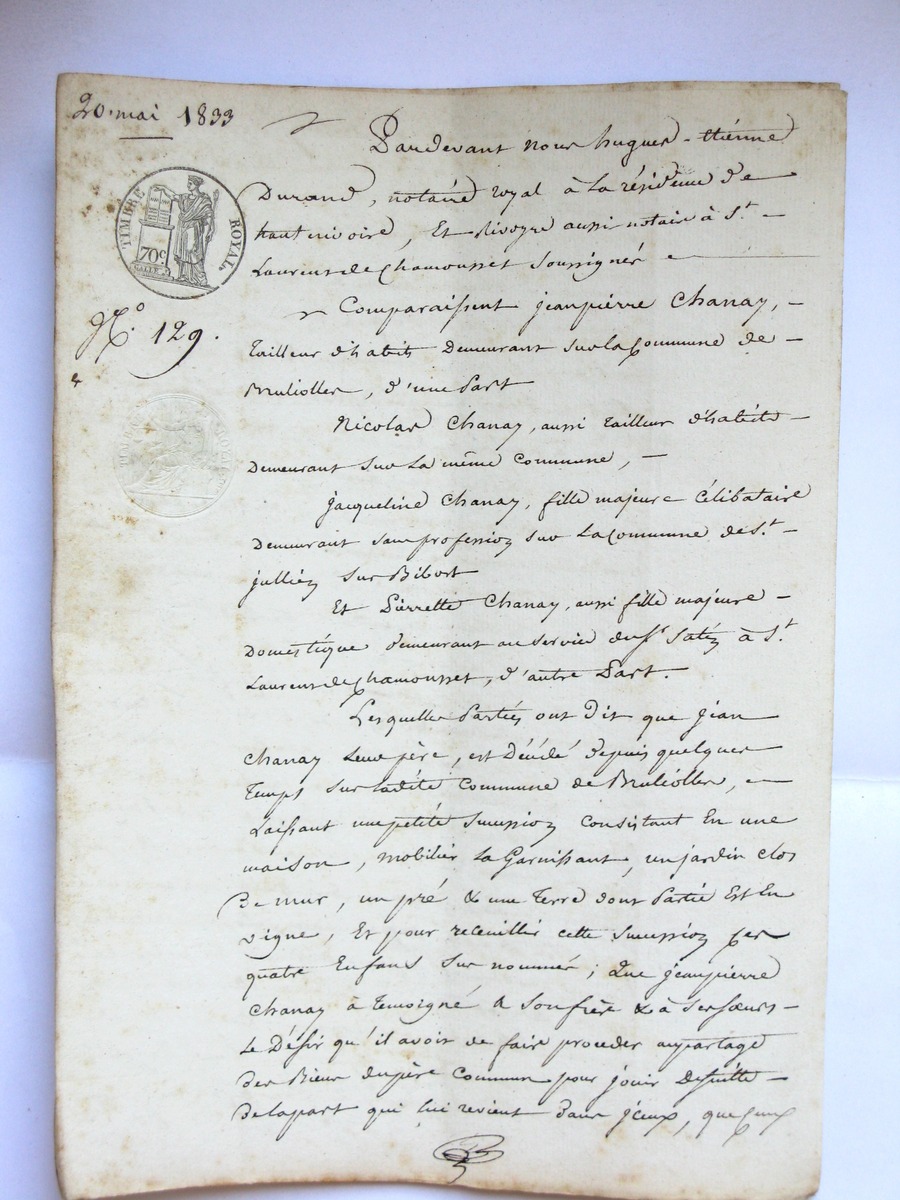 20 mai 1833
TIMBRE ROYAL
70 C
N.º 129.
Pardevant nous hugues-étienne
Durand, notaire royal à la résidence de
hauterivoire, Et Rivoyre aussi notaire à S.t
Laurent de Chamousset Soussignés
Comparaissent jeanpierre Chanay,
tailleur d'habits Demeurant sur la Commune de
Brulioller, d'une Part
Nicolas Chanay, aussi tailleur d'habits
Demeurant sur la même commune,
jacqueline Chanay, fille majeure Célibataire
Demeurant sans profession sur La Commune de S.t
jullien sur Bibost
Et Pierrette Chanay, aussi fille majeure
Domestique demeurant au service du S.r à S.t
Laurent de Chamousset, d'autre Part.
Lesquelles Parties ont Dit que jean
Chanay Leur père, est Décédé depuis quelques
Temps sur ladite Commune de Brulioller,
Laissant une petite succession Consistant En une
maison, mobilier la Garnissant, un jardin clos
De mur, un pré & une Terre dont Partie Est En
vigne, Et pour receuillir cette succession ses
quatre Enfans sus nommés; Que jeanpierre
Chanay à Temoigné a Son frère & à Ses soeurs
Le Désir qu'il avoit de faire proceder au partage
Des Biens du père Commun pour jouir De suitte
De la part qui lui revient dans iceux, que ceux